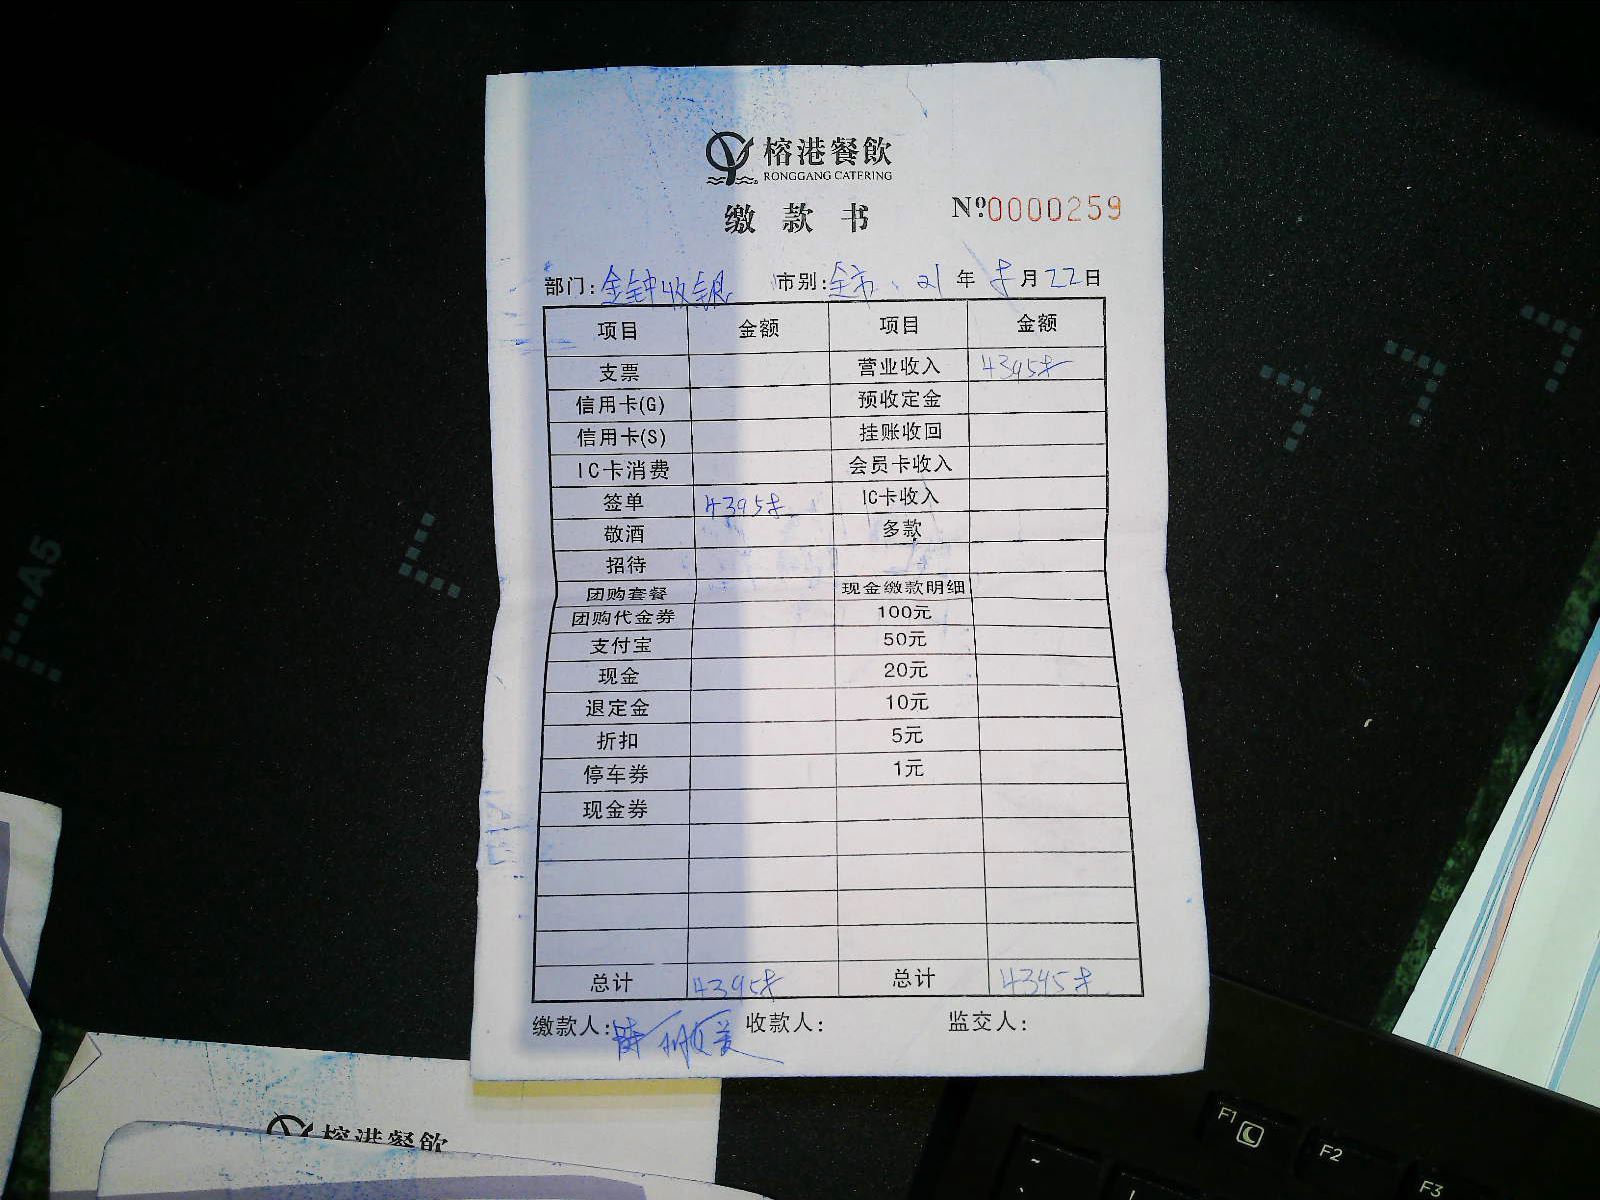 榕港餐飲
RONGGANG CATERING
缴款书 №0000259
部门:金钟收银 市别:全市、21年 8月22日
项目 金额 项目 金额
支票 营业收入 4395
信用卡(G) 预收定金
信用卡(S) 挂账收回
IC卡消费 会员卡收入
签单 4395 IC卡收入
敬酒 多款
招待
团购套餐 现金缴款明细
团购代金券 100元
支付宝 50元
现金 20元
退定金 10元
折扣 5元
停车券 1元
现金券
总计 4395 总计 4395
缴款人: 收款人: 监交人:
榕港餐飲
A5
F1
F2
F3
~